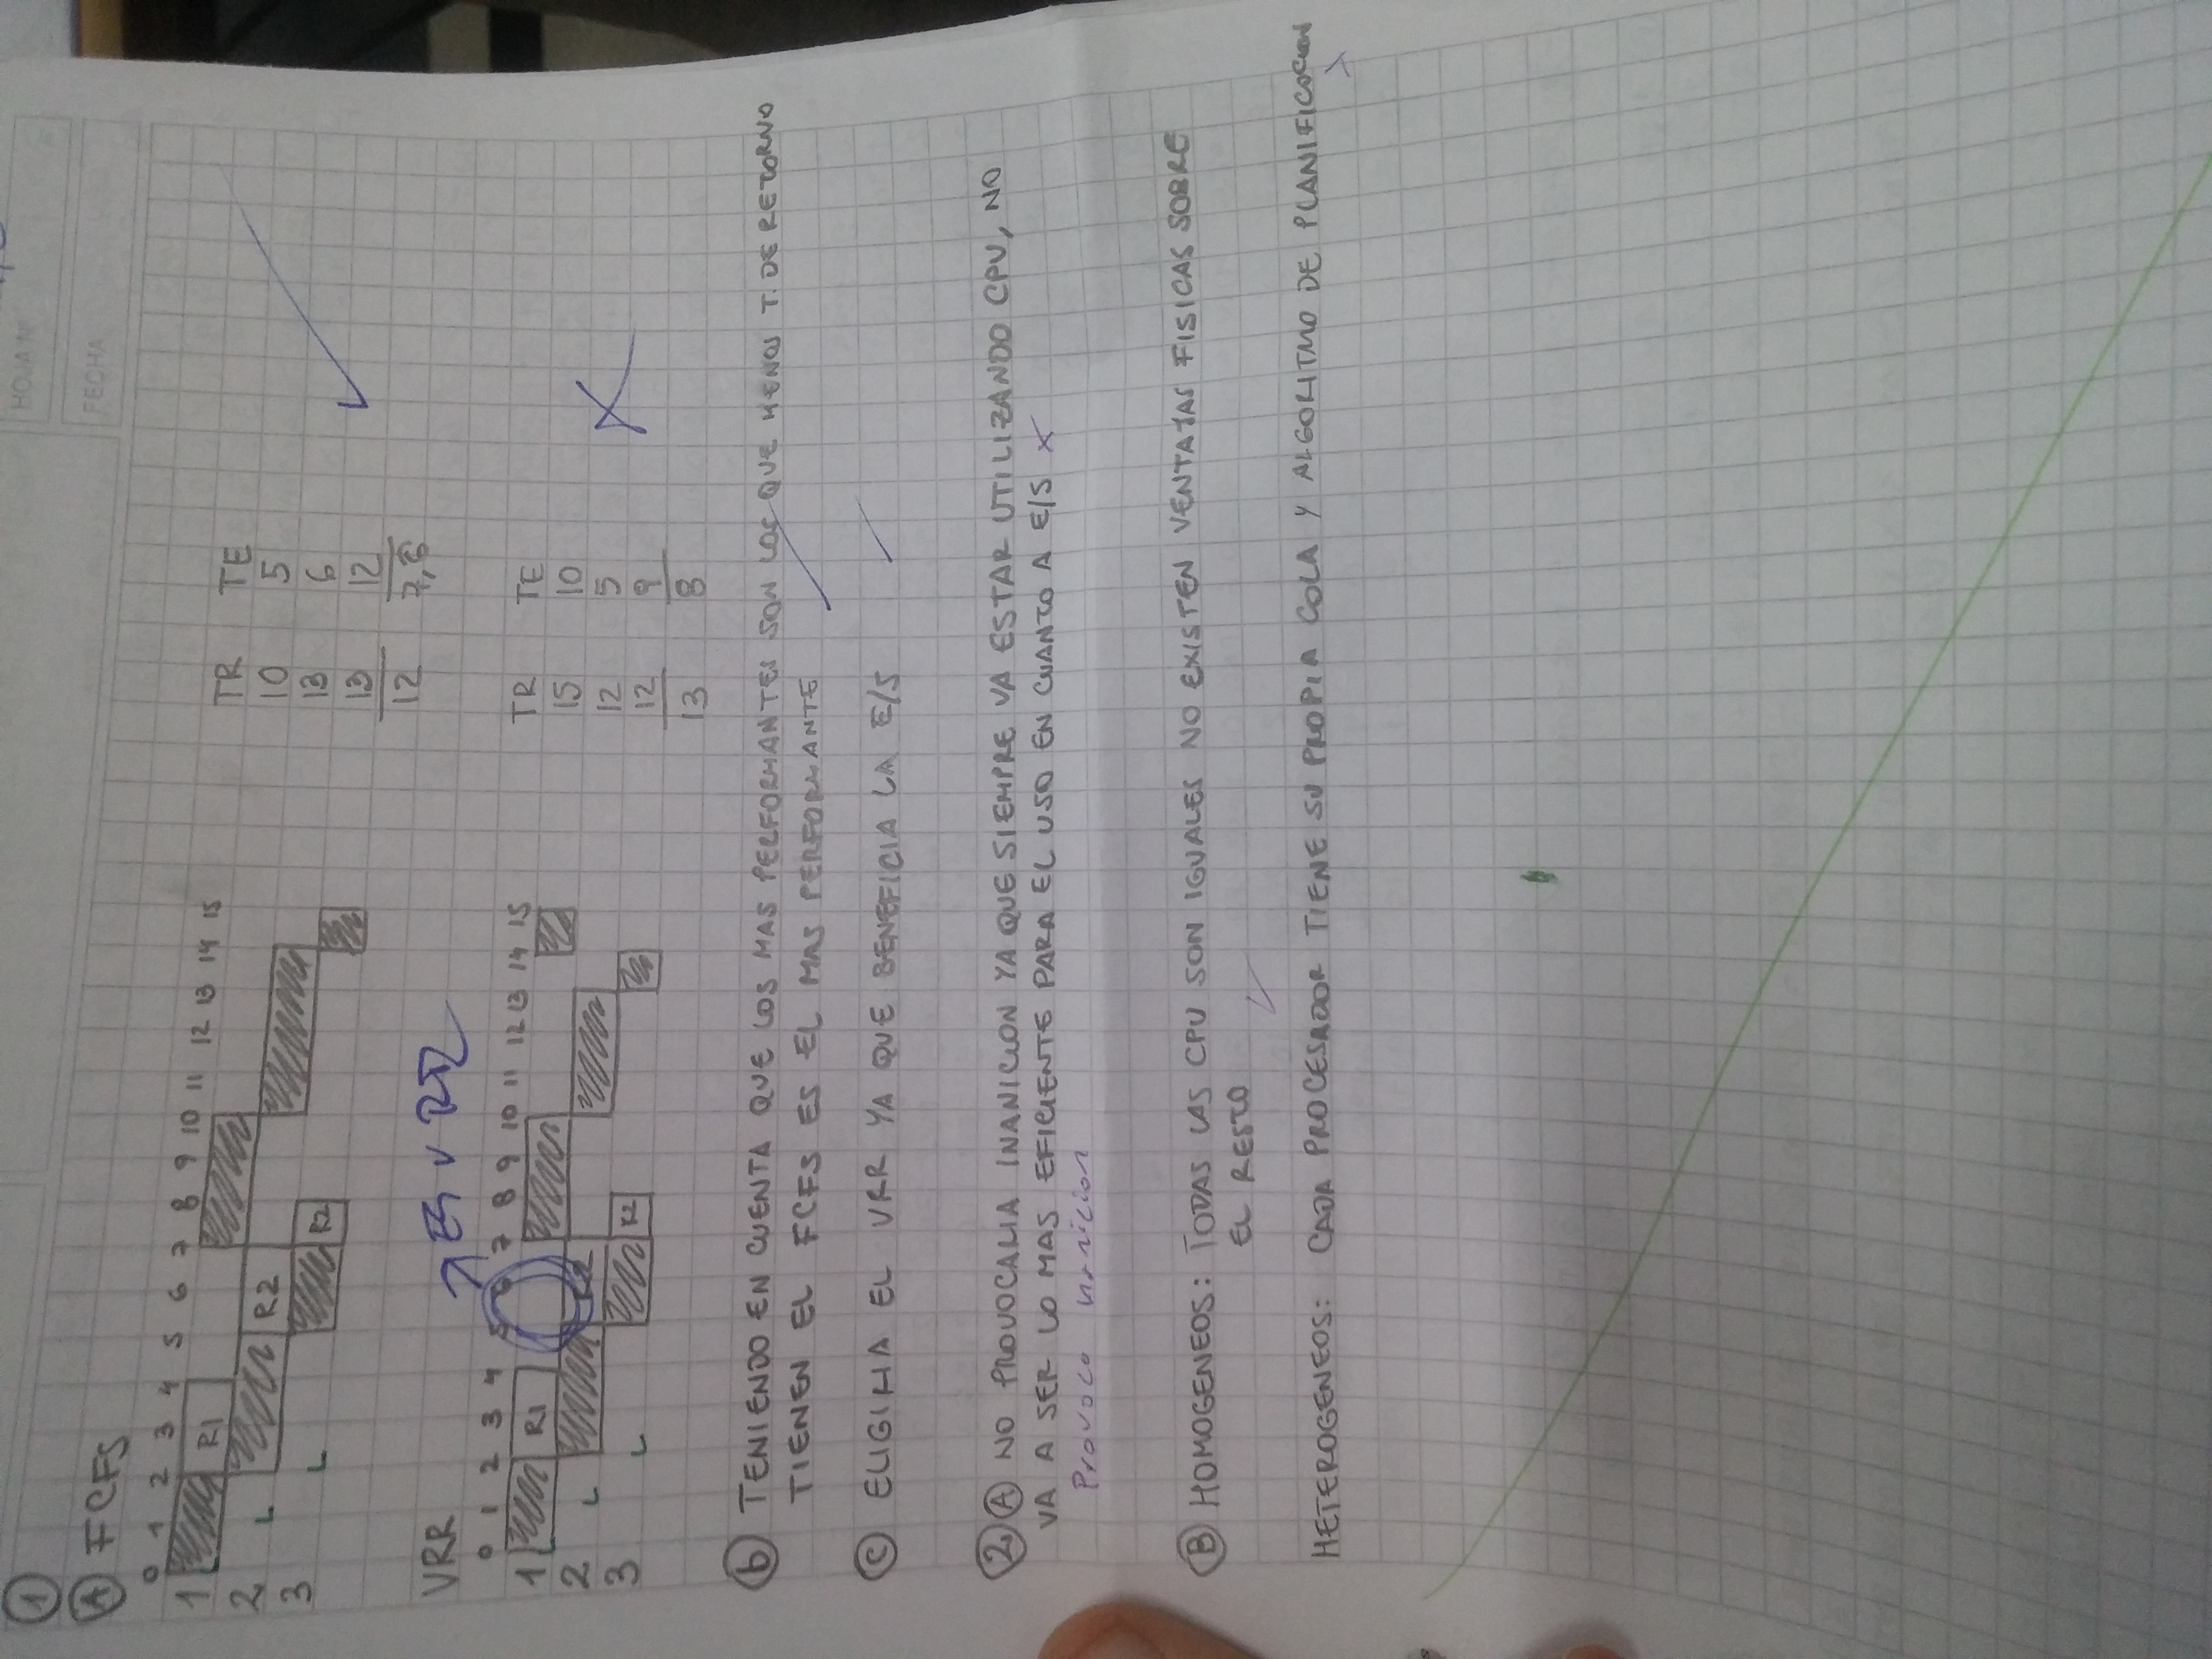 HOJA Nº
FECHA
1
A FCFS
0 1 2 3 4 5 6 7 8 9 10 11 12 13 14 15
1 R1
2 L R2
3 L R2
TR TE
10 5
13 6
13 12
12 7,6
VRR
ES VRR
0 1 2 3 4 5 6 7 8 9 10 11 12 13 14 15
1 R1
2 L R2
3 L R2
TR TE
15 10
12 5
12 9
13 8
b TENIENDO EN CUENTA QUE LOS MAS PERFORMANTES SON LOS QUE MENOS T. DE RETORNO
TIENEN EL FCFS ES EL MAS PERFORMANTE
C ELIGIRIA EL VRR YA QUE BENEFICIA LA E/S
2 A NO PROVOCARIA INANICION YA QUE SIEMPRE VA ESTAR UTILIZANDO CPU, NO
VA A SER LO MAS EFICIENTE PARA EL USO EN CUANTO A E/S X
Provoca inanicion
B HOMOGENEOS: TODAS LAS CPU SON IGUALES NO EXISTEN VENTAJAS FISICAS SOBRE
EL RESTO
HETEROGENEOS: CADA PROCESADOR TIENE SU PROPIA COLA Y ALGORITMO DE PLANIFICACION